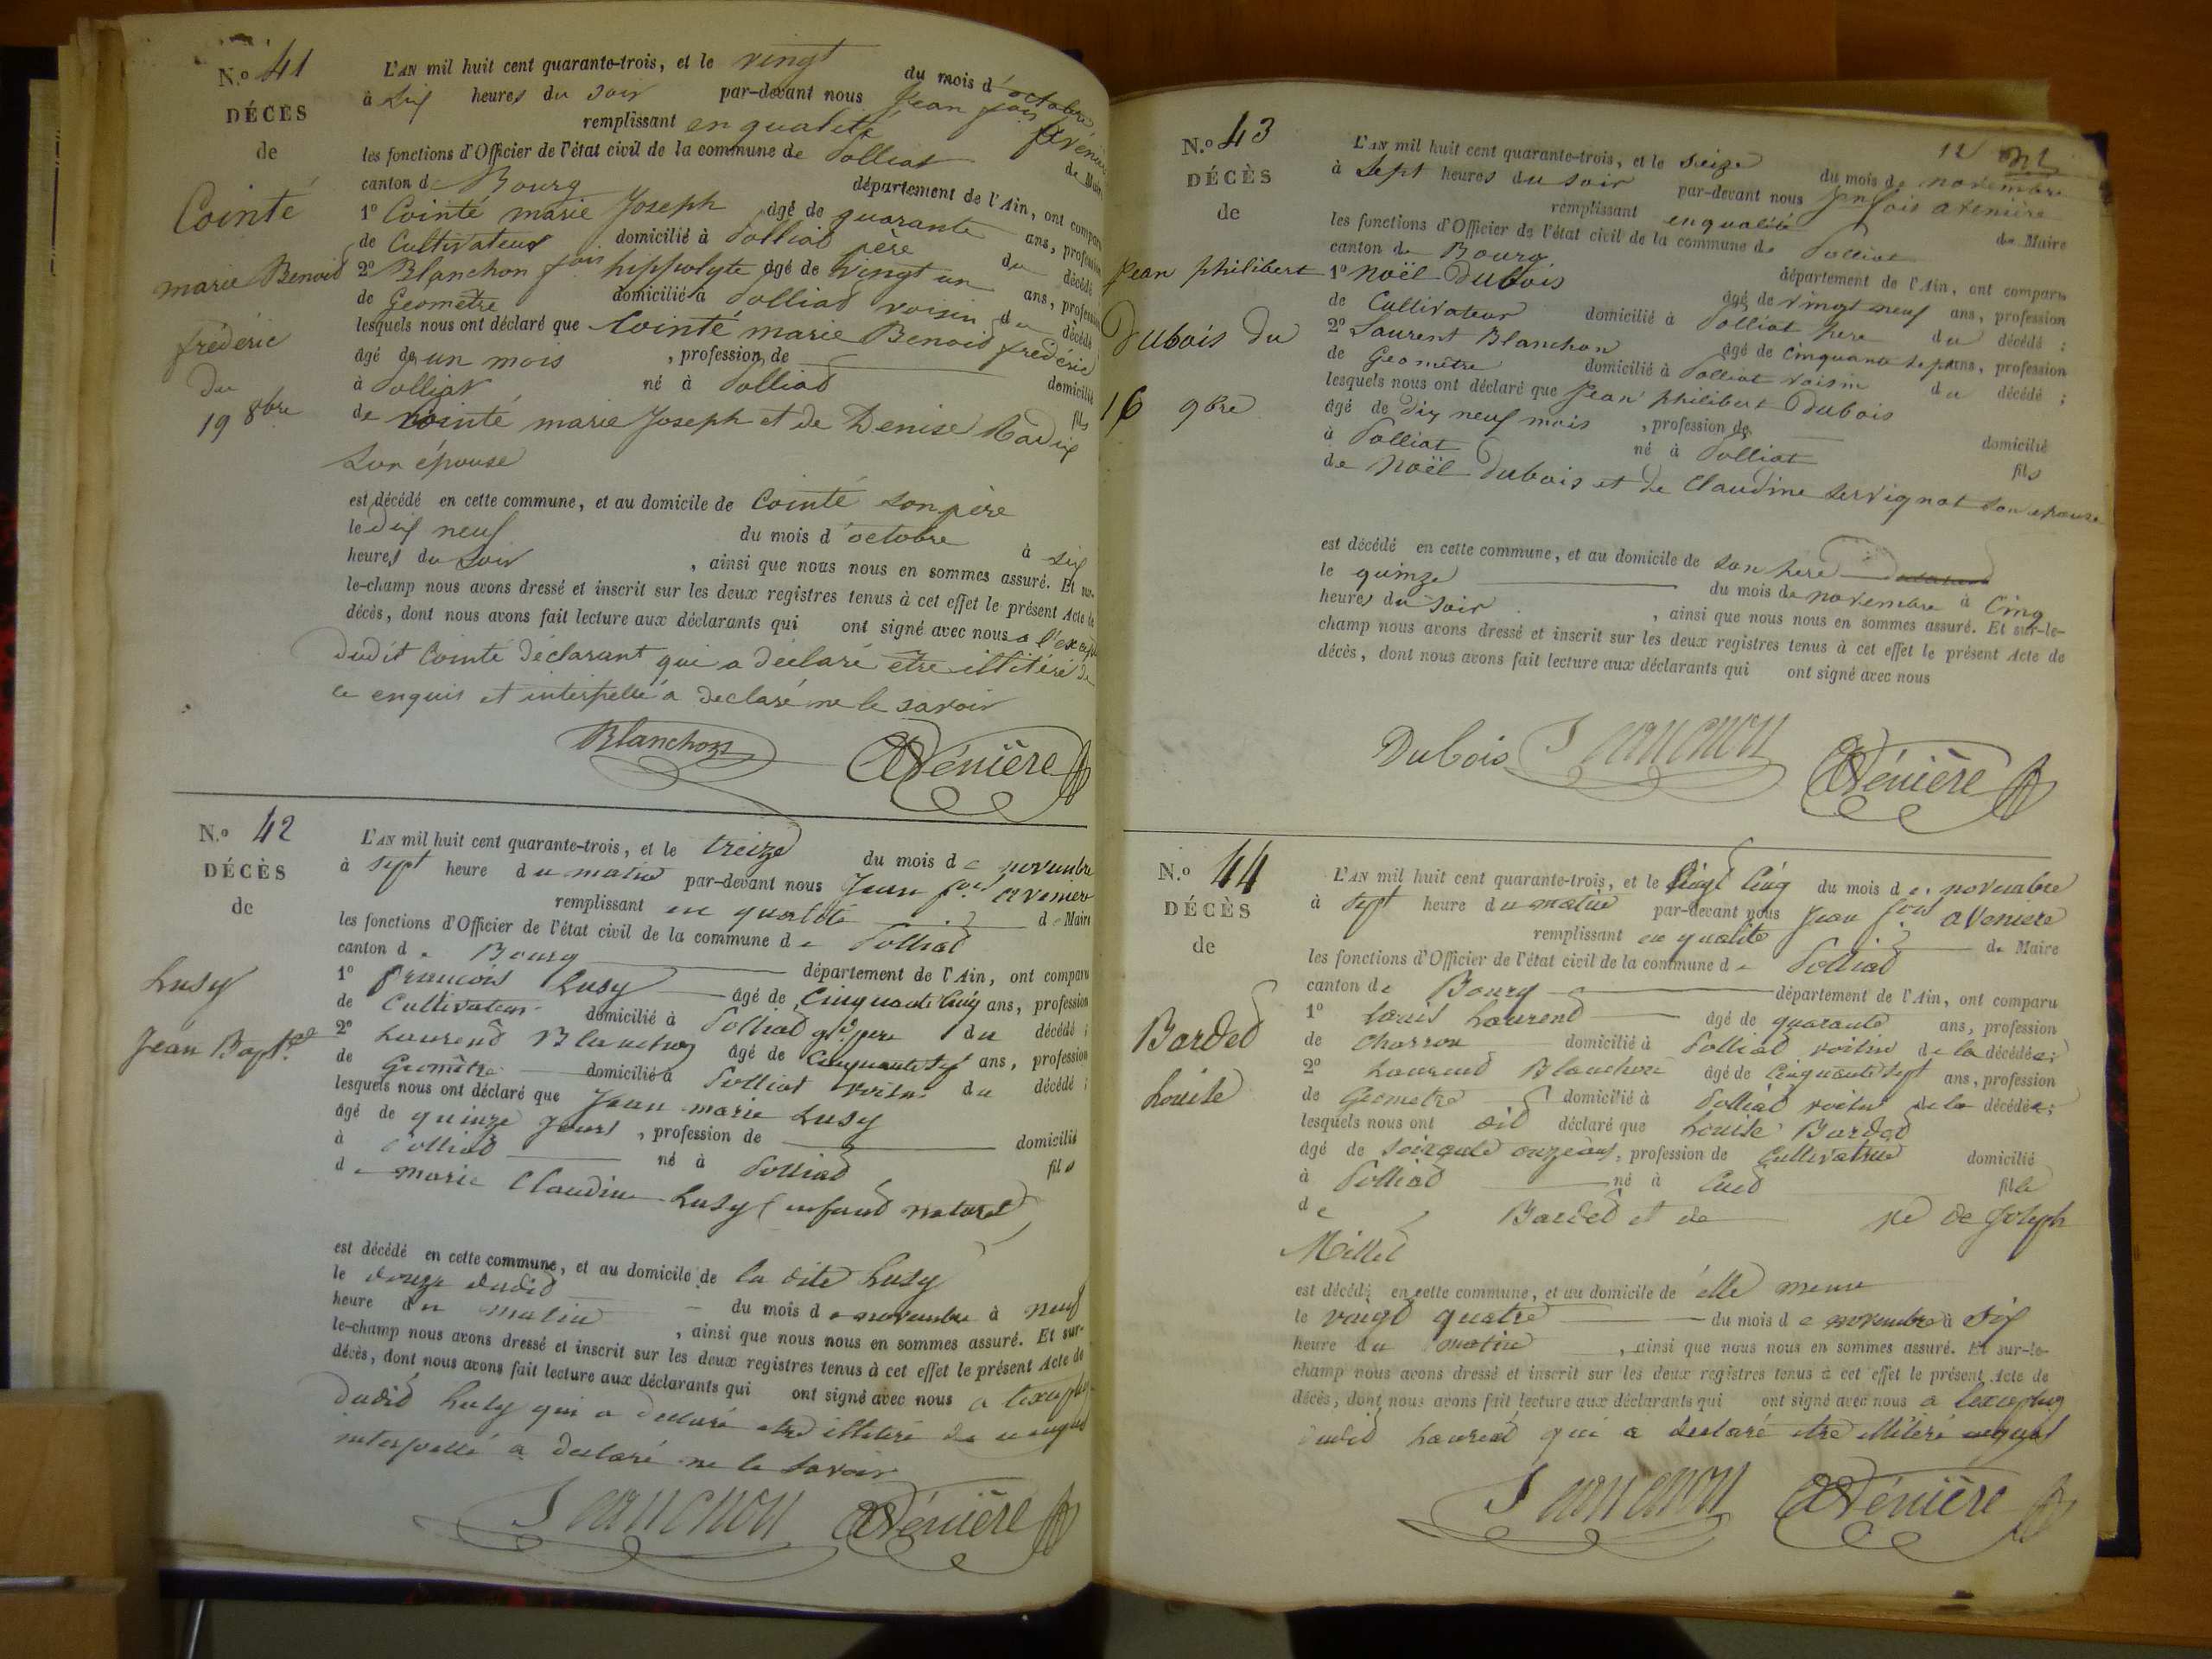 N.º 41
DÉCÈS
de
Cointé
marie Benoid
frédéric
du
19 8bre
L'AN mil huit cent quarante-trois, et le vingt du mois d'octobre
à six heures du soir par-devant nous Jean fois Avénière
remplissant en qualité de Maire
les fonctions d'Officier de l'état civil de la commune de Polliat
canton de Bourg département de l'Ain, ont comparu
1º Cointé marie Joseph âgé de quarante ans, profession
de Cultivateur domicilié à Polliat père du décédé
2º Blanchon fois hippolyte âgé de vingt un ans, profession
de Geomètre domicilié à Polliat voisin du décédé
lesquels nous ont déclaré que Cointé marie Benoid frédéric
âgé de un mois , profession de domicilié
à Polliat né à Polliat fils
de Cointé marie Joseph et de Denise Radix
son épouse
est décédé en cette commune, et au domicile de Cointé son père
le dix neuf du mois d'octobre à six
heures du soir , ainsi que nous nous en sommes assuré. Et sur-
le-champ nous avons dressé et inscrit sur les deux registres tenus à cet effet le présent Acte de
décès, dont nous avons fait lecture aux déclarants qui ont signé avec nous a l'except
dudit Cointé déclarant qui a declaré être illitéré de
ce enquis et interpellé a declaré ne le savoir
Blanchon Avénière
N.º 42
DÉCÈS
de
Lusy
Jean Bapt.te
L'AN mil huit cent quarante-trois, et le treize du mois de novembre
à sept heure du matin par-devant nous Jean fois aveniere
remplissant en qualité de Maire
les fonctions d'Officier de l'état civil de la commune de Polliat
canton de Bourg département de l'Ain, ont comparu
1º francois Lusy âgé de Cinquante Cinq ans, profession
de Cultivateur domicilié à Polliat gd pere du décédé ;
2º Laurend Blanchon âgé de Cinquante sept ans, profession
de Géomètre domicilié à Polliat voisin du décédé ;
lesquels nous ont déclaré que Jean marie Lusy
âgé de quinze jours , profession de domicilié
à Polliat né à Polliat fils
de marie Claudine Lusy ( enfand naturel )
est décédé en cette commune, et au domicile de la dite Lusy
le douze dudid du mois de novembre à neuf
heure du matin , ainsi que nous nous en sommes assuré. Et sur-
le-champ nous avons dressé et inscrit sur les deux registres tenus à cet effet le présent Acte de
décès, dont nous avons fait lecture aux déclarants qui ont signé avec nous a l'exception
dudid Lusy qui a declaré etre illitéré de ce enquis
interpellé a declaré ne le savoir
Avénière
N.º 43
DÉCÈS
de
Jean philibert
Dubois du
16 9bre
12
L'AN mil huit cent quarante-trois, et le seize du mois de novembre
à sept heures du soir par-devant nous Jn fois avenière
remplissant en qualité de Maire
les fonctions d'Officier de l'état civil de la commune de Polliat
canton de Bourg département de l'Ain, ont comparu
1º Noël Dubois âgé de vingt neuf ans, profession
de Cultivateur domicilié à Polliat pere du décédé ;
2º Laurent Blanchon âgé de cinquante sept ans, profession
de Geomètre domicilié à Polliat voisin du décédé ;
lesquels nous ont déclaré que Jean philibert Dubois
âgé de dix neuf mois , profession de domicilié
à Polliat né à Polliat fils
de Noël Dubois et de Claudine Servignat son epouse
est décédé en cette commune, et au domicile de son pere
le quinze du mois de novembre à Cinq
heures du soir , ainsi que nous nous en sommes assuré. Et sur-le-
champ nous avons dressé et inscrit sur les deux registres tenus à cet effet le présent Acte de
décès, dont nous avons fait lecture aux déclarants qui ont signé avec nous
Dubois Avénière
N.º 44
DÉCÈS
de
Barded
Louise
L'AN mil huit cent quarante-trois, et le vingt Cinq du mois de novembre
à sept heure du matin par-devant nous Jean fois aveniere
remplissant en qualité de Maire
les fonctions d'Officier de l'état civil de la commune de Polliat
canton de Bourg département de l'Ain, ont comparu
1º Louis Laurend âgé de quarante ans, profession
de Charron domicilié à Polliat voisin de la décédée ;
2º Laurend Blanchon âgé de Cinquante sept ans, profession
de Geometre domicilié à Polliat voisin de la décédée ;
lesquels nous ont did déclaré que Louise Barded
âgé de soixante onze ans, profession de Cultivatrice domicilié
à Polliat né à Cued fille
de Barded et de ve de Joseph
Millet
est décédé en cette commune, et au domicile de elle meme
le vingt quatre du mois de novembre à six
heure du matin , ainsi que nous nous en sommes assuré. Et sur-le-
champ nous avons dressé et inscrit sur les deux registres tenus à cet effet le présent Acte de
décès, dont nous avons fait lecture aux déclarants qui ont signé avec nous a l'exception
dudid Laurend qui a declaré etre illitéré enquis
Avénière